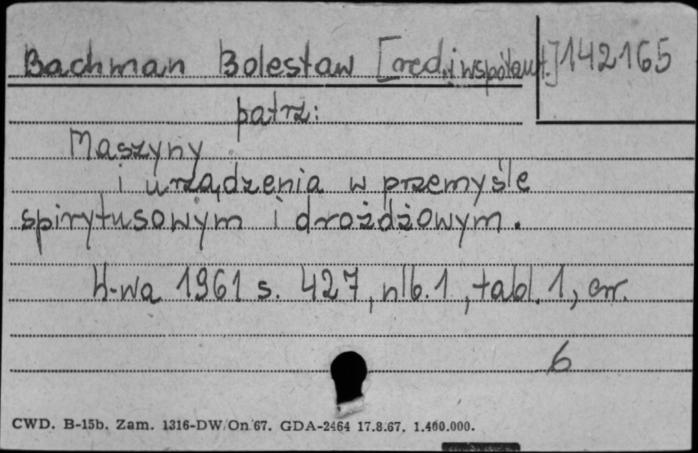 Bachman Bolesław [red. i współaut.] 142165
patrz:
Maszyny
i urządzenia w przemyśle
spirytusowym i drożdżowym.
W-wa 1961 s. 427, nlb. 1, tabl. 1, err.
6
CWD. B-15b. Zam. 1316-DW/On 67. GDA-2464 17.8.67. 1.400.000.